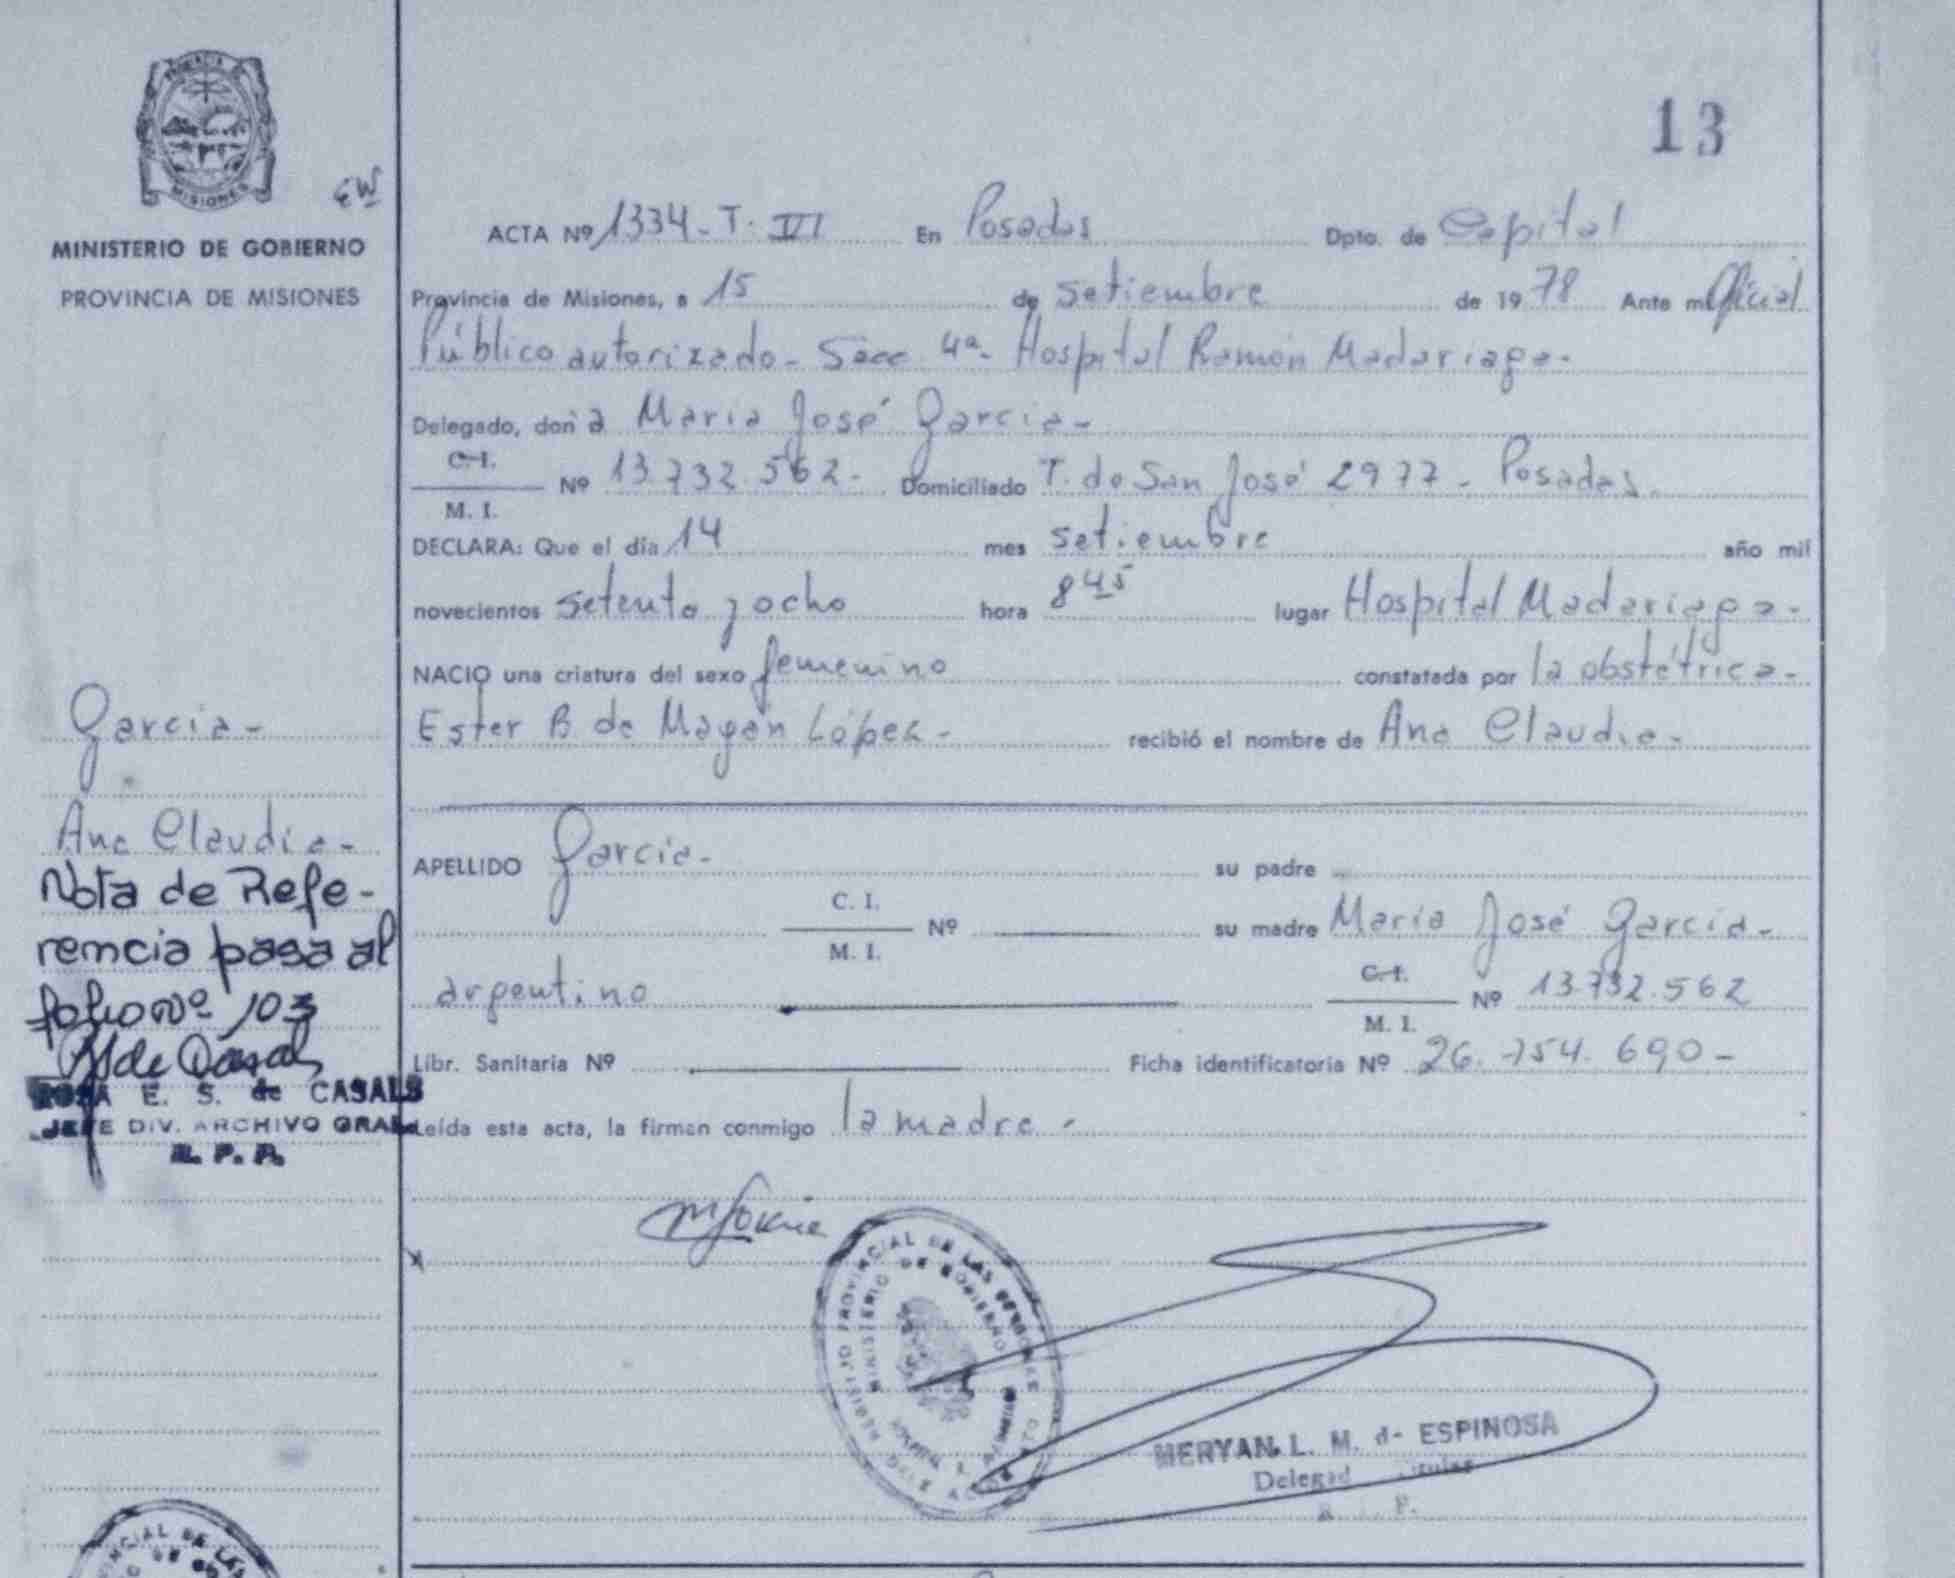 PROVINCIA DE
MISIONES
EW
MINISTERIO DE GOBIERNO
PROVINCIA DE MISIONES
13
ACTA Nº 1334-T. VII En Posadas Dpto. de Capital
Provincia de Misiones, a 15 de setiembre de 1978 Ante mi Oficial
Público autorizado - Secc 4ª- Hospital Ramón Madariaga-
Delegado, don a Maria José Garcia-
C. I.
M. I.
Nº 13.732.562- Domiciliado T. de San José 2977 - Posadas.
DECLARA: Que el día 14 mes setiembre año mil
novecientos setenta y ocho hora 8 45 lugar Hospital Madariaga-
NACIO una criatura del sexo femenino constatada por la obstétrica-
Ester B de Magán López- recibió el nombre de Ana Claudia-
APELLIDO Garcia- su padre
C. I.
M. I.
Nº su madre Maria José Garcia-
argentino C. I.
M. I.
Nº 13.732.562
Libr. Sanitaria Nº Ficha identificatoria Nº 26.754.690-
Leída esta acta, la firman conmigo la madre-
Garcia-
Ana Claudia-
Nota de Refe-
rencia pasa al
folio nº 103
ROSA E. S. de CASALS
JEFE DIV. ARCHIVO GRAL.
R. P. P.
REGISTRO PROVINCIAL DE LAS PERSONAS
MINISTERIO DE GOBIERNO
MERYAN L. M. de ESPINOSA
Delegad Titular
R. P.
PROVINCIAL DE LAS